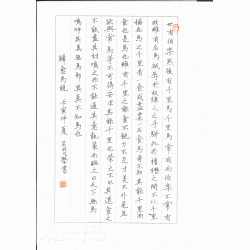 世有伯樂然後有千里馬千里馬常有而伯樂不常有
故雖有名馬祇辱於奴隸人之手駢死於槽櫪之間不以千里
稱也馬之千里者一食或盡粟一石食馬者不知其能千里而
食也是馬也雖有千里之能食不飽力不足才美不外見且
欲與常馬等不可得安求其能千里也策之不以其道食之
不能盡其材鳴之而不能通其意執策而臨之曰天下無馬
嗚呼其真無馬邪其真不知馬也
韓愈馬說 壬寅仲夏 書